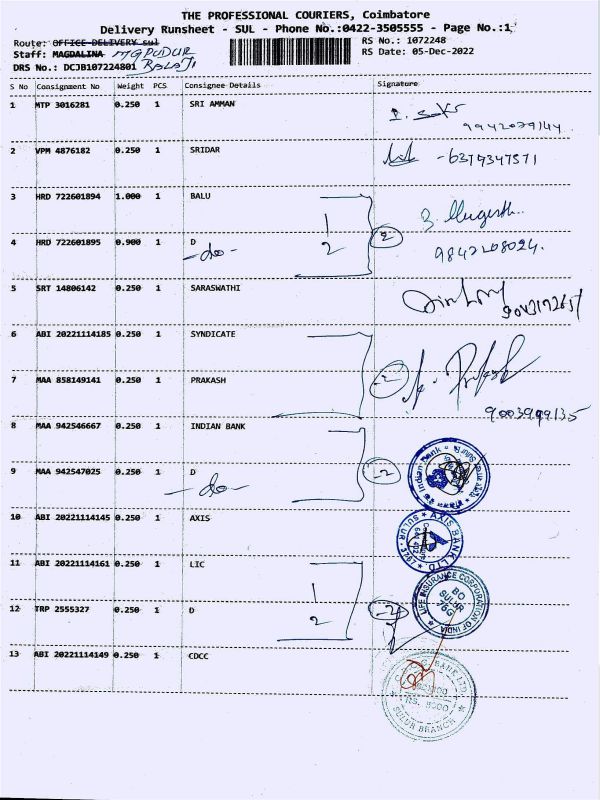 THE PROFESSIONAL COURIERS, Coimbatore
Delivery Runsheet - SUL - Phone No.:0422-3505555 - Page No.:1
Route: OFFICE DELIVERY sul
Staff: MAGDALINA MGPUDUR
DRS No.: DCJB107224801 BALAJI
RS No.: 1072248
RS Date: 05-Dec-2022
S No Consignment No Weight PCS Consignee Details Signature
1 MTP 3016281 0.250 1 SRI AMMAN
9942079144
2 VPM 4876182 0.250 1 SRIDAR -6379347571
3 HRD 722601894 1.000 1 BALU 1
4 HRD 722601895 0.900 1 D 2 2
-do- 9842208024.
5 SRT 14806142 0.250 1 SARASWATHI
6 ABI 20221114185 0.250 1 SYNDICATE
7 MAA 858149141 0.250 1 PRAKASH -2
9003999135
8 MAA 942546667 0.250 1 INDIAN BANK
Indian Bank
9 MAA 942547025 0.250 1 D -2
-do-
10 ABI 20221114145 0.250 1 AXIS
AXIS BANK LTD. SULUR
11 ABI 20221114161 0.250 1 LIC 1
LIFE INSURANCE CORPORATION OF INDIA
BO
SULUR
76G
12 TRP 2555327 0.250 1 D 2 -2
13 ABI 20221114149 0.250 1 CDCC
BANK LTD
SULUR BRANCH